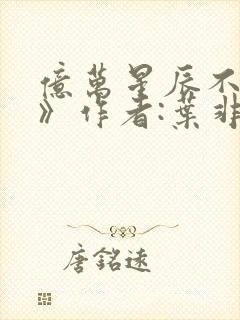 億萬星辰不
》作者:葉非
唐銘遠